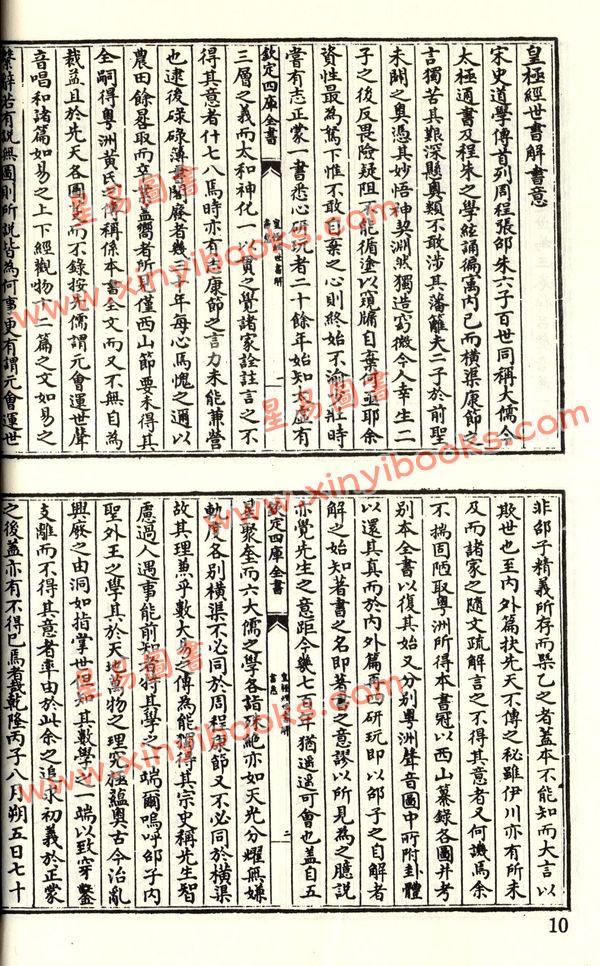 皇極經世書解書意
宋史道學傳首列周程張邵朱六子百世同稱大儒今
太極通書及程朱之學絃誦徧寓内已而横渠康節之
言獨苦其艱深懸輿類不敢涉其藩籬夫二子於前聖
未闢之奥憑其妙悟神契淵然獨造窮微令人幸生二
子之後反畏險疑阻不能循塗以窺牖自棄何亟耶余
資性最為駑下惟不敢自棄之心則終始不渝少壯時
嘗有志正蒙一書悉心研玩者二十餘年始知太虚有
三層之義而太和神化一以貫之覺諸家詮註言之不
得其意者什七八焉時亦有志康節之言力未能兼營
也逮後碌碌簿書閣廢者幾三十年每心焉愧之邇以
農田餘晷取而卒業嚮者所見僅西山節要未得其
全嗣得粤洲黄氏之傳稱係本書全文而又不無自為
裁益且於先天各圖更而不錄按先儒謂元會運世聲
音唱和諸篇如易之上下經觀物十二篇之文如易之
繫辭若有說無圖則所說皆為何事更有謂元會運世
欽定四庫全書
皇極經世書解
書意
一
非邵子精義所存而槩乙之者蓋本不能知而大言以
欺世也至内外篇抉先天不傳之秘雖伊川亦有所未
及而諸家之隨文疏解言之不得其意者又何譏焉余
不揣固陋取粤洲所得本書冠以西山纂錄各圖并考
别本全書以復其始又分别粤洲聲音圖中所附卦體
以還其真而於内外篇再四研玩即以邵子之自解者
解之始知著書之名即著書之意謬以所見為之臆說
亦覺先生之意距今幾七百年猶遥遥可會也蓋自五
欽定四庫全書
皇極經世書解
書意
二
星聚奎而六大儒之學各詣殊絶亦如天光分耀無嫌
軌度各别横渠不必同於周程康節又不必同於横渠
故其理兼乎數大易之傳為能獨得其宗史稱先生智
慮過人遇事能前知者特其學之一端爾嗚呼邵子内
聖外王之學其於天地萬物之理究極蘊奥古今治亂
興廢之由洞如指掌世但知其數學之一端以致穿鑿
支離而不得其意者率由於此余之追求初義於正蒙
之後蓋亦有不得已焉者哉乾隆丙子八月朔五日七十
10
星易圖書
www.xinyibooks.com
星易圖書
www.xinyibooks.com
星易圖書
www.xinyibooks.com